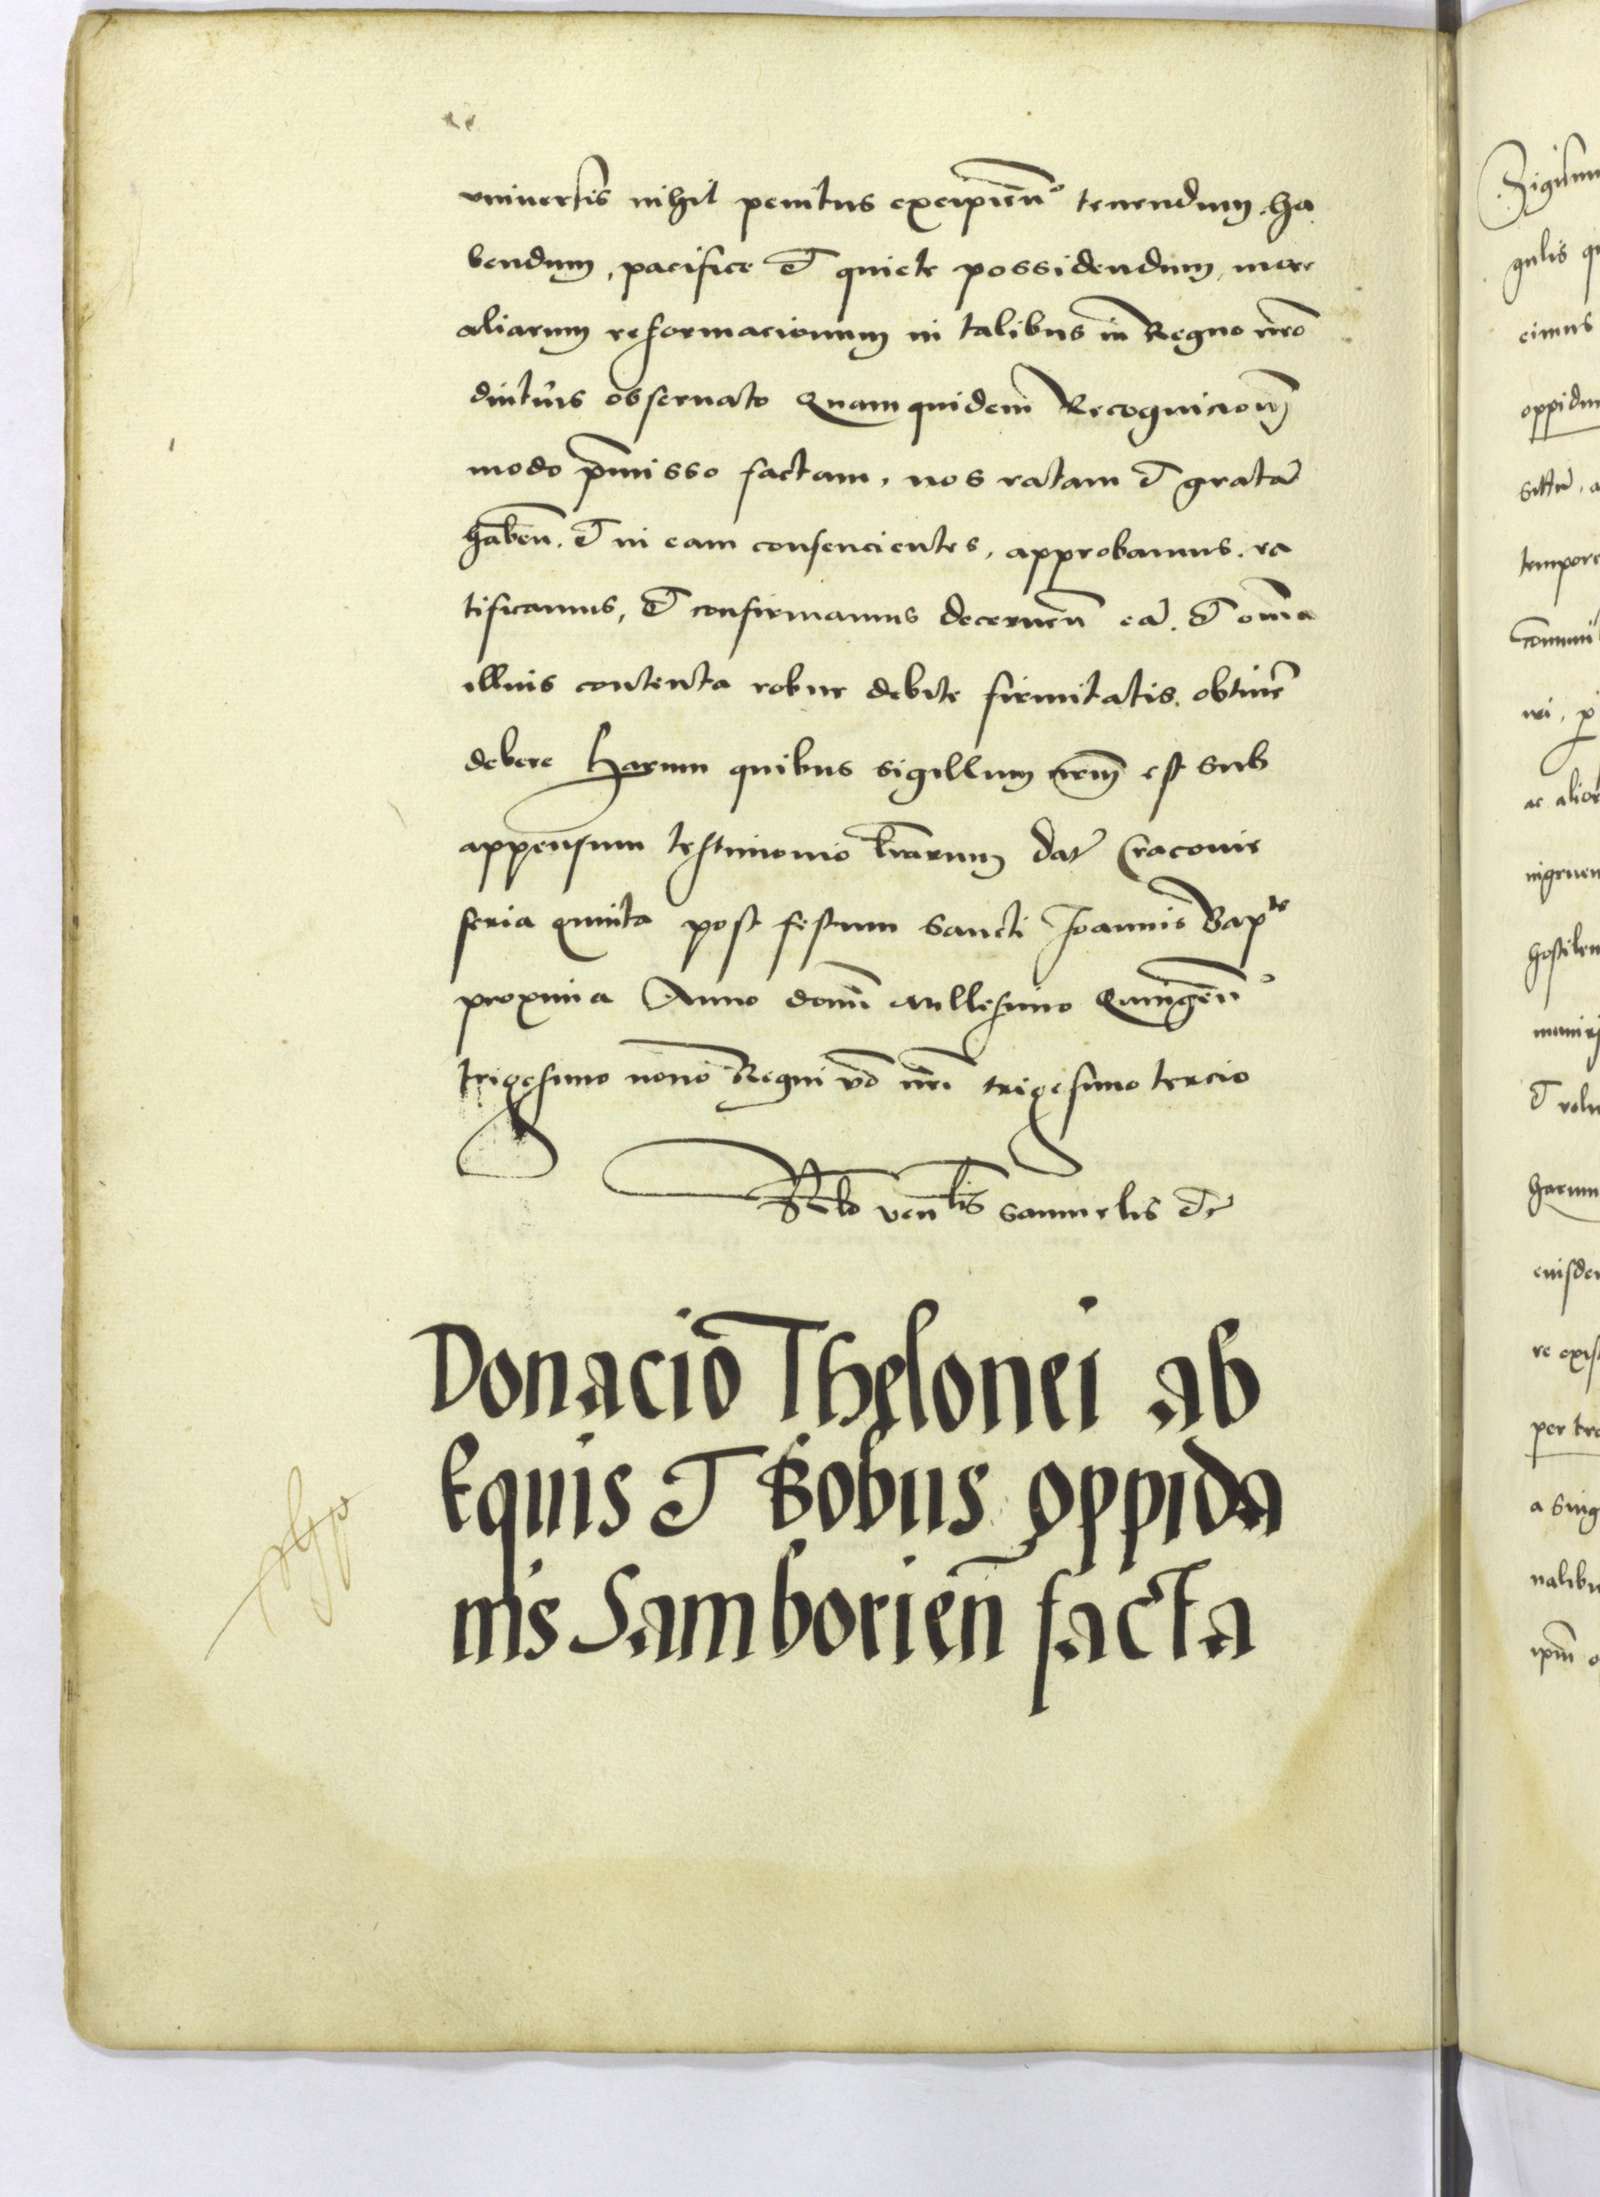 vniuersis nihil penitus excipien̄º tenendum . ha
bendum , pacifice et quiete possidendum , more
aliarum reformacionum in talibus in Regno nr̄o
diutius obseruato Quam quidem Recognicionē
modo p̄misso factam , nos ratam et gratā
haben̄ . et in eam consencientes , approbamus . ra
tificamus , et confirmamus decernen̄ eā . et om̄ia
illius contenta robur debite firmitatis . obtinēr
debere Harum quibus sigillum nr̄m est sub
appensum testimonio lr̄arum dat̄ Cracouie
feria quinta post festum sancti Joannis Bapᵗᵉ
proxima Anno domī Millesimo Quingen̄º
trigesimo nono Regni v̄o nr̄i trigesimo tercio
Rl̄o ven̄lis Samuelis etc̄
Donacio Thelonei ab
Equis et Bobus oppida
nis Samborien̄ facta
Sigismu
gulis qu
cimus
oppidu
sitū , a
tempore
Commu
ri , p
ac alior
ingruen
hostilem
muniri
et volu
harum
eiusdem
re exist
per tra
a sing
nalibu
ipm̄ o